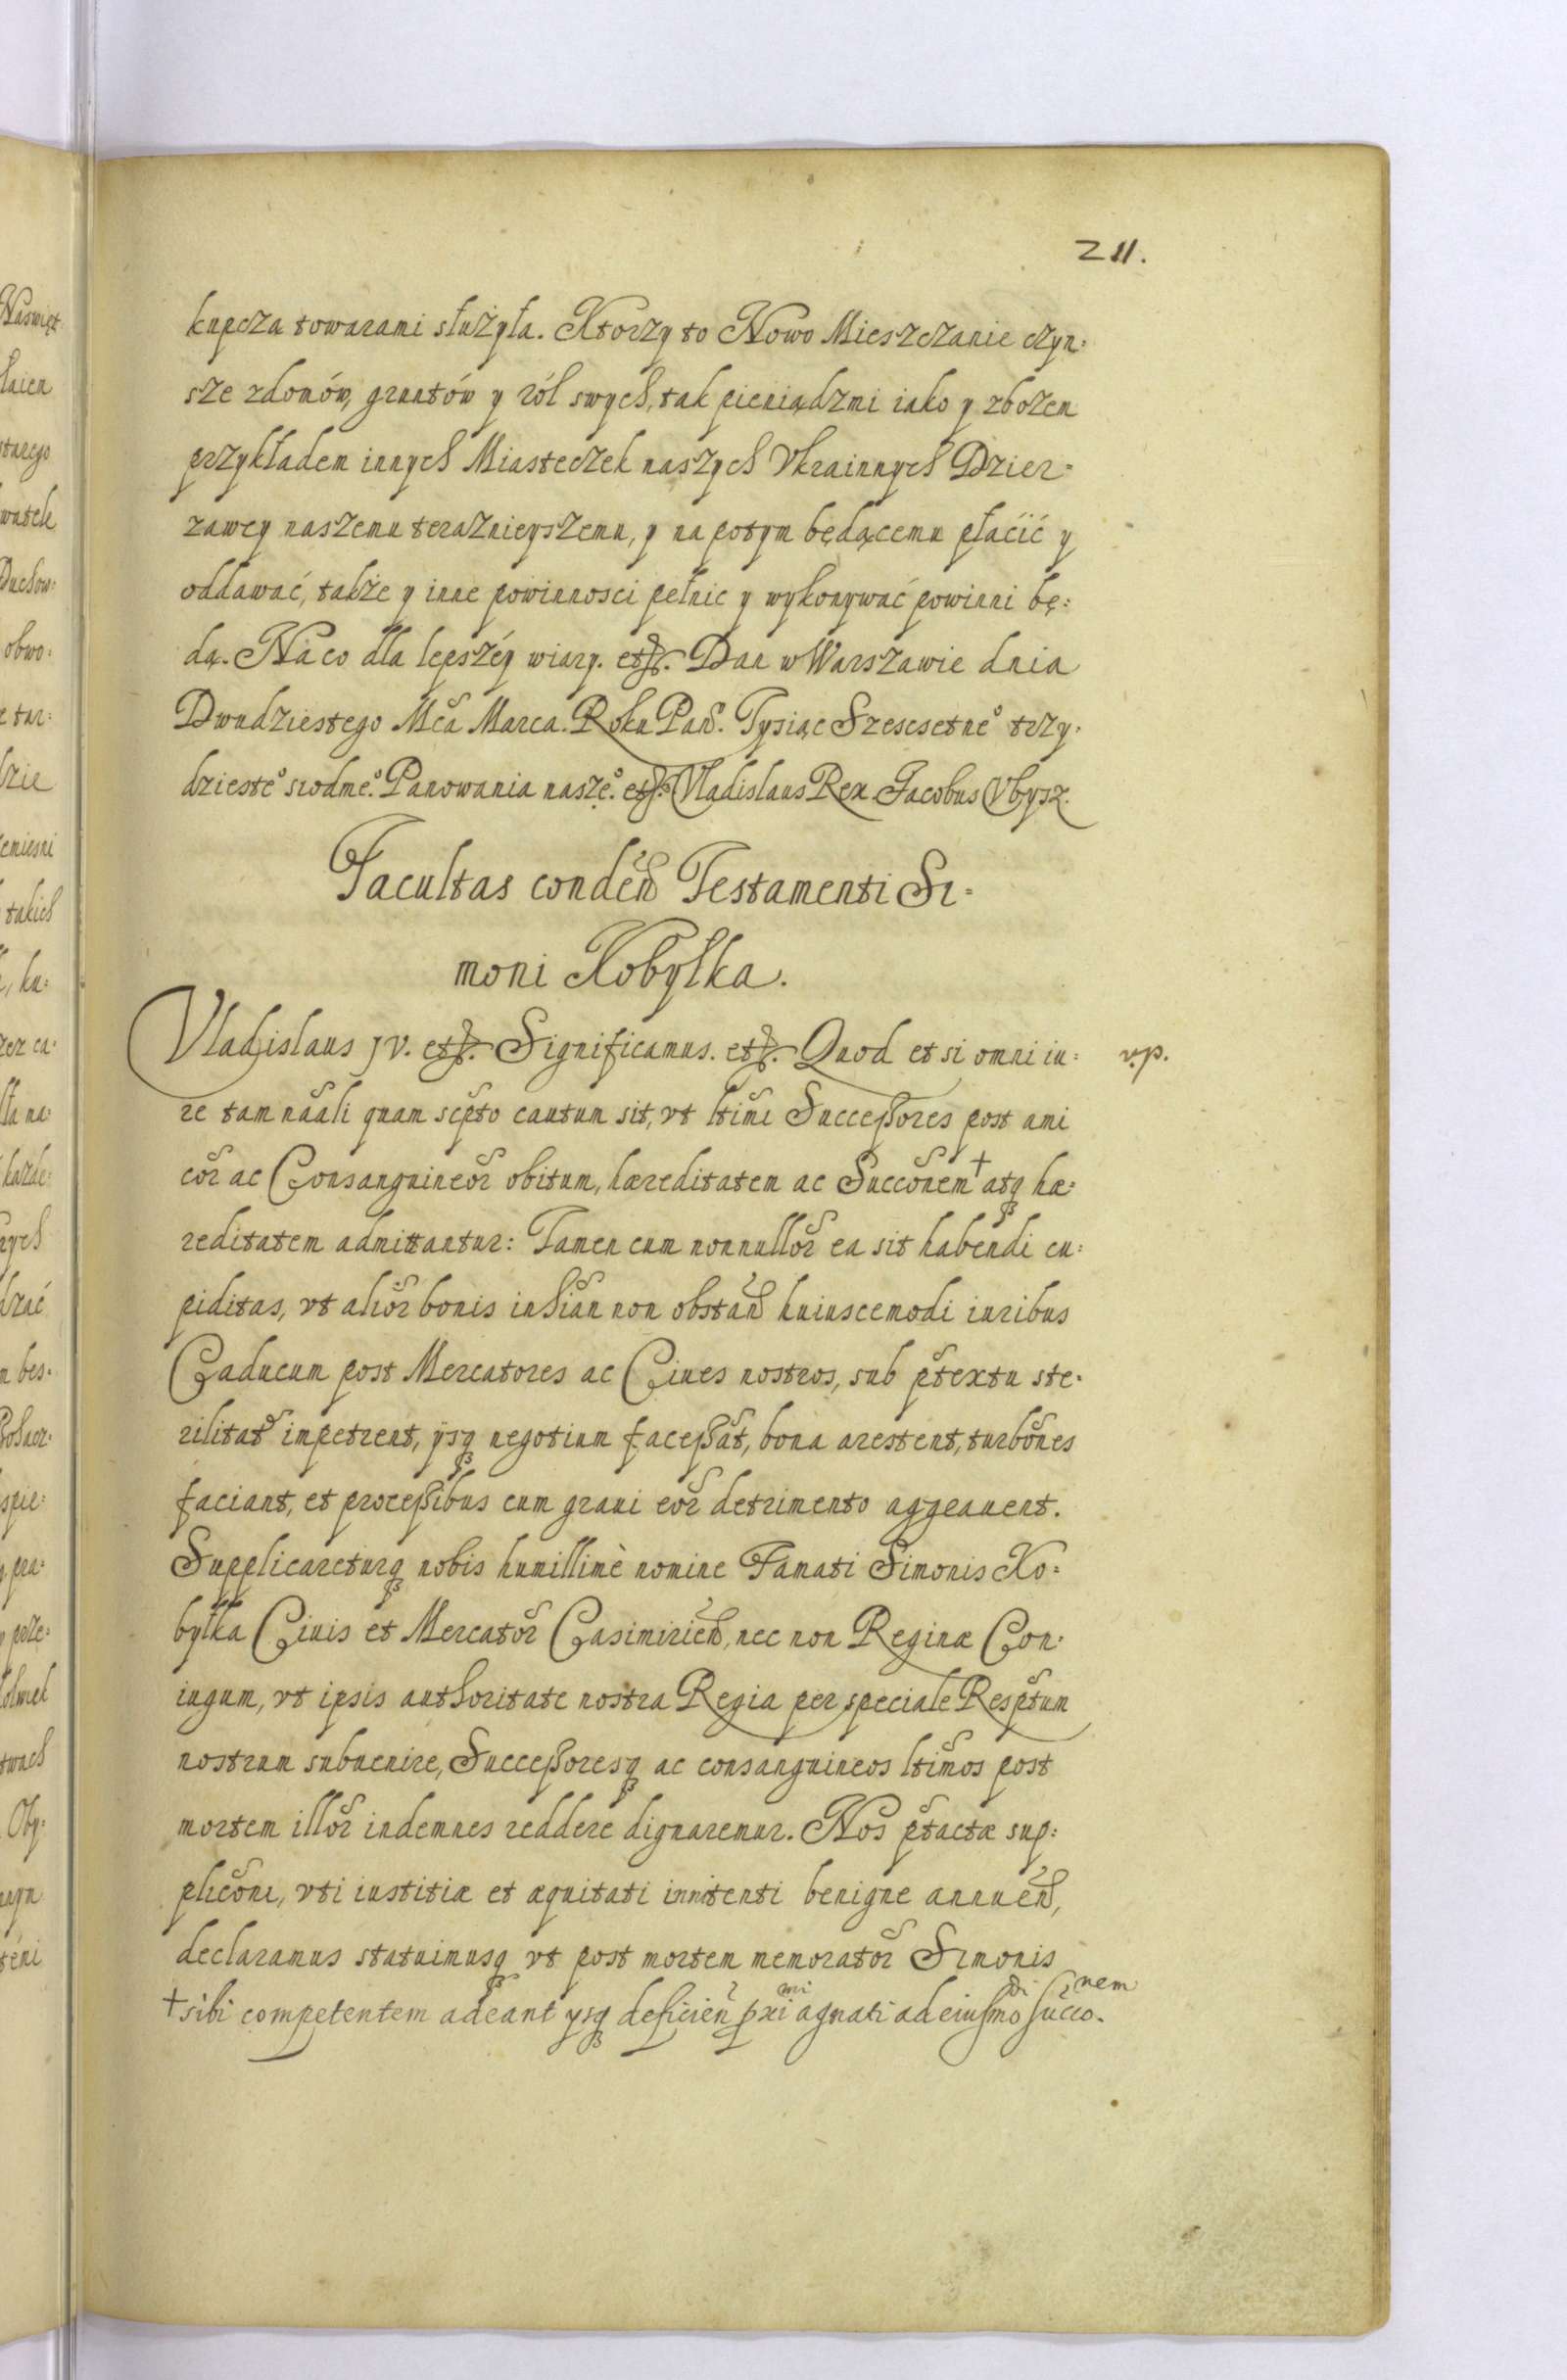 211.
kupcza towarami służyła. Ktorzy to Nowo Mieszczanie czyn:
sze zdomów, gruntów y ról swych, tak pieniądzmi iako y zbozem
przykładem innych Miasteczek naszych Vkrainnych Dzier:
zawcy naszemu teraznieyszemu, y na potym będącemu płaćić y
oddawać, także y inne powinnosci pełnic y wykonywać powinni bę:
dą. Na co dla lepszéy wiary. etc. Dan w Warszawie dnia
Dwudziestego Mca Marca. Roku Pań. Tysiąc Szescsetne° trzy:
dzieste° siodme°. Panowania nasze°. etc. Vladislaus Rex. Jacobus Vbysz.
Facultas conden Testamenti Si:
moni Kobyłka.
Vladislaus JV. etc. Significamus. etc. Quod et si omni iu:
re tam naali quam scpto cautum sit, vt ltimi Successores post ami
cor ac Consanguineor obitum, hæreditatem ac Succonem † atq hæ:
reditatem admittantur: Tamen cum nonnullor ea sit habendi cu:
piditas, vt alior bonis inhian non obstan huiuscemodi iuribus
Caducum post Mercatores ac Ciues nostros, sub ptextu ste:
rilitat impetrent, ijsq negotium facessat, bona arestent, turbones
faciant, et processibus cum graui eor detrimento aggrauent.
Supplicareturq nobis humillimè nomine Famati Simonis Ko:
byłka Ciuis et Mercator Casimirien, nec non Reginæ Con:
iugum, vt ipsis authoritate nostra Regia per speciale Resptum
nostrum subuenire, Successoresq ac consanguineos ltimos post
mortem illor indemnes reddere dignaremur. Nos ptactæ sup:
pliconi, vti iustitiæ et æquitati innitenti benigne annuen,
declaramus statuimusq vt post mortem memorator Simonis
† sibi competentem adeant ysq deficien pxi mi agnati ad eiusmo di succo. nem
v.p.